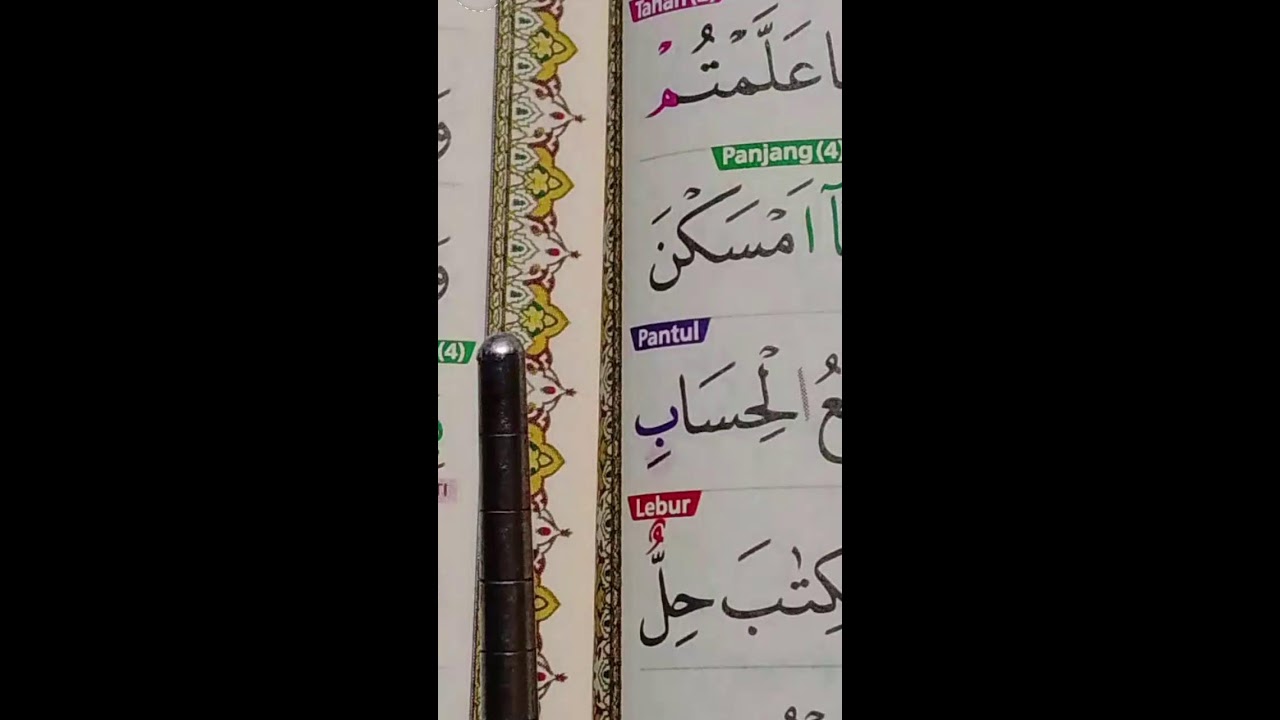 Tahan
عَلَّمْتُمْ
Panjang (4)
آ اَمْسَكْنَ
Pantul
عُ الْحِسَابِ
(4)
Lebur
كِتٰبَ حِلٌّ